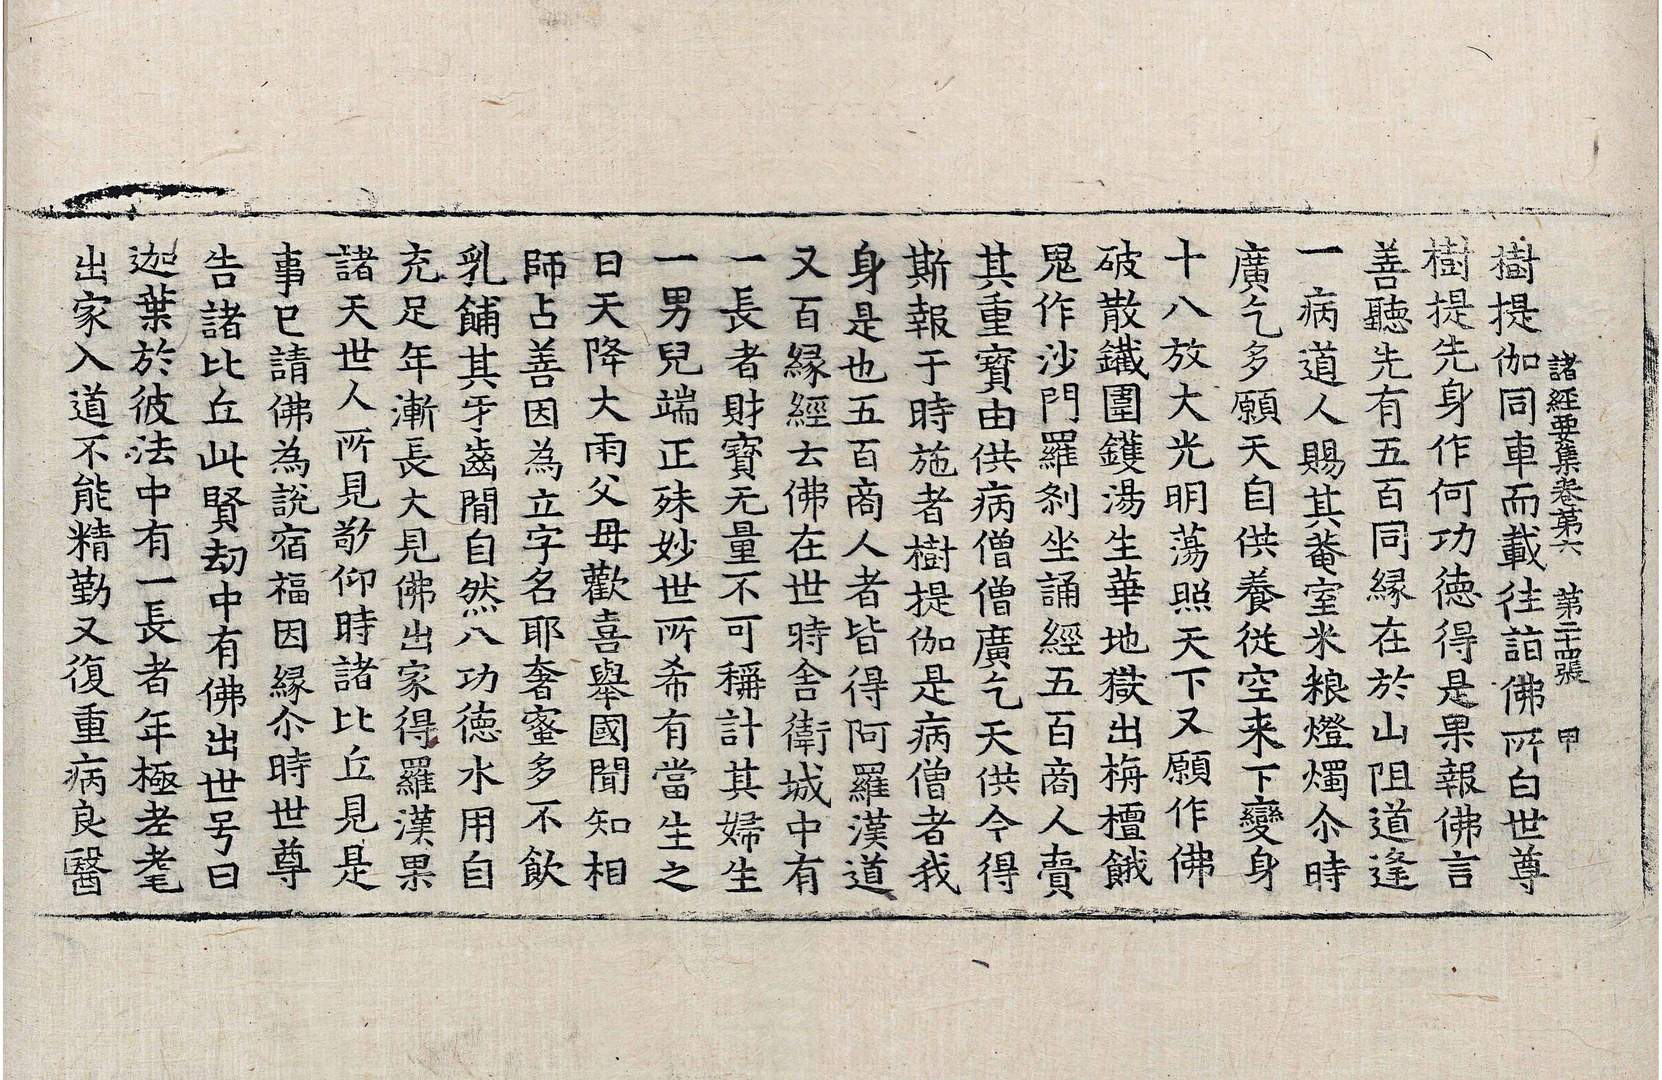 諸經要集卷第六　第二十四張　甲
樹提伽同車而載往詣佛所白世尊
樹提先身作何功德得是果報佛言
善聽先有五百同縁在於山阻道逢
一病道人賜其菴室米粮燈燭尒時
廣乞多願天自供養從空来下變身
十八放大光明蕩照天下又願作佛
破散鐵圍鑊湯生華地獄出栴檀餓
鬼作沙門羅剎坐誦經五百商人賷
其重寳由供病僧僧廣乞天供今得
斯報于時施者樹提伽是病僧者我
身是也五百商人者皆得阿羅漢道
又百縁經云佛在世時舍衛城中有
一長者財寳无量不可稱計其婦生
一男兒端正殊妙世所希有當生之
日天降大雨父母歡喜舉國聞知相
師占善因為立字名耶奢蜜多不飲
乳餔其牙齒間自然八功德水用自
充足年漸長大見佛出家得羅漢果
諸天世人所見敬仰時諸比丘見是
事已請佛為說宿福因縁尒時世尊
告諸比丘此賢劫中有佛出世号曰
迦葉於彼法中有一長者年極老耄
出家入道不能精勤又復重病良醫